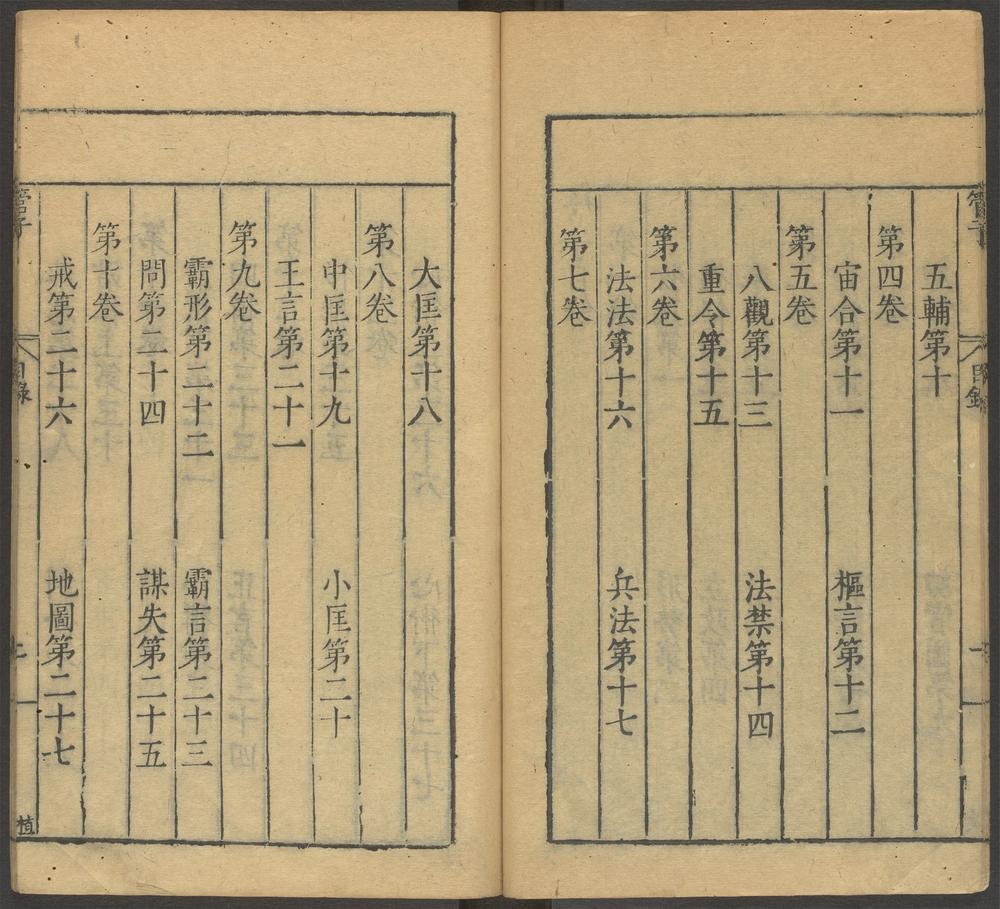 管子
目錄
五輔第十
第四卷
宙合第十一　樞言第十二
第五卷
八觀第十三　法禁第十四
重令第十五
第六卷
法法第十六　兵法第十七
第七卷
大匡第十八
第八卷
中匡第十九　小匡第二十
王言第二十一
第九卷
霸形第二十二　霸言第二十三
問第二十四　謀失第二十五
第十卷
戒第二十六　地圖第二十七
管子
目錄
植